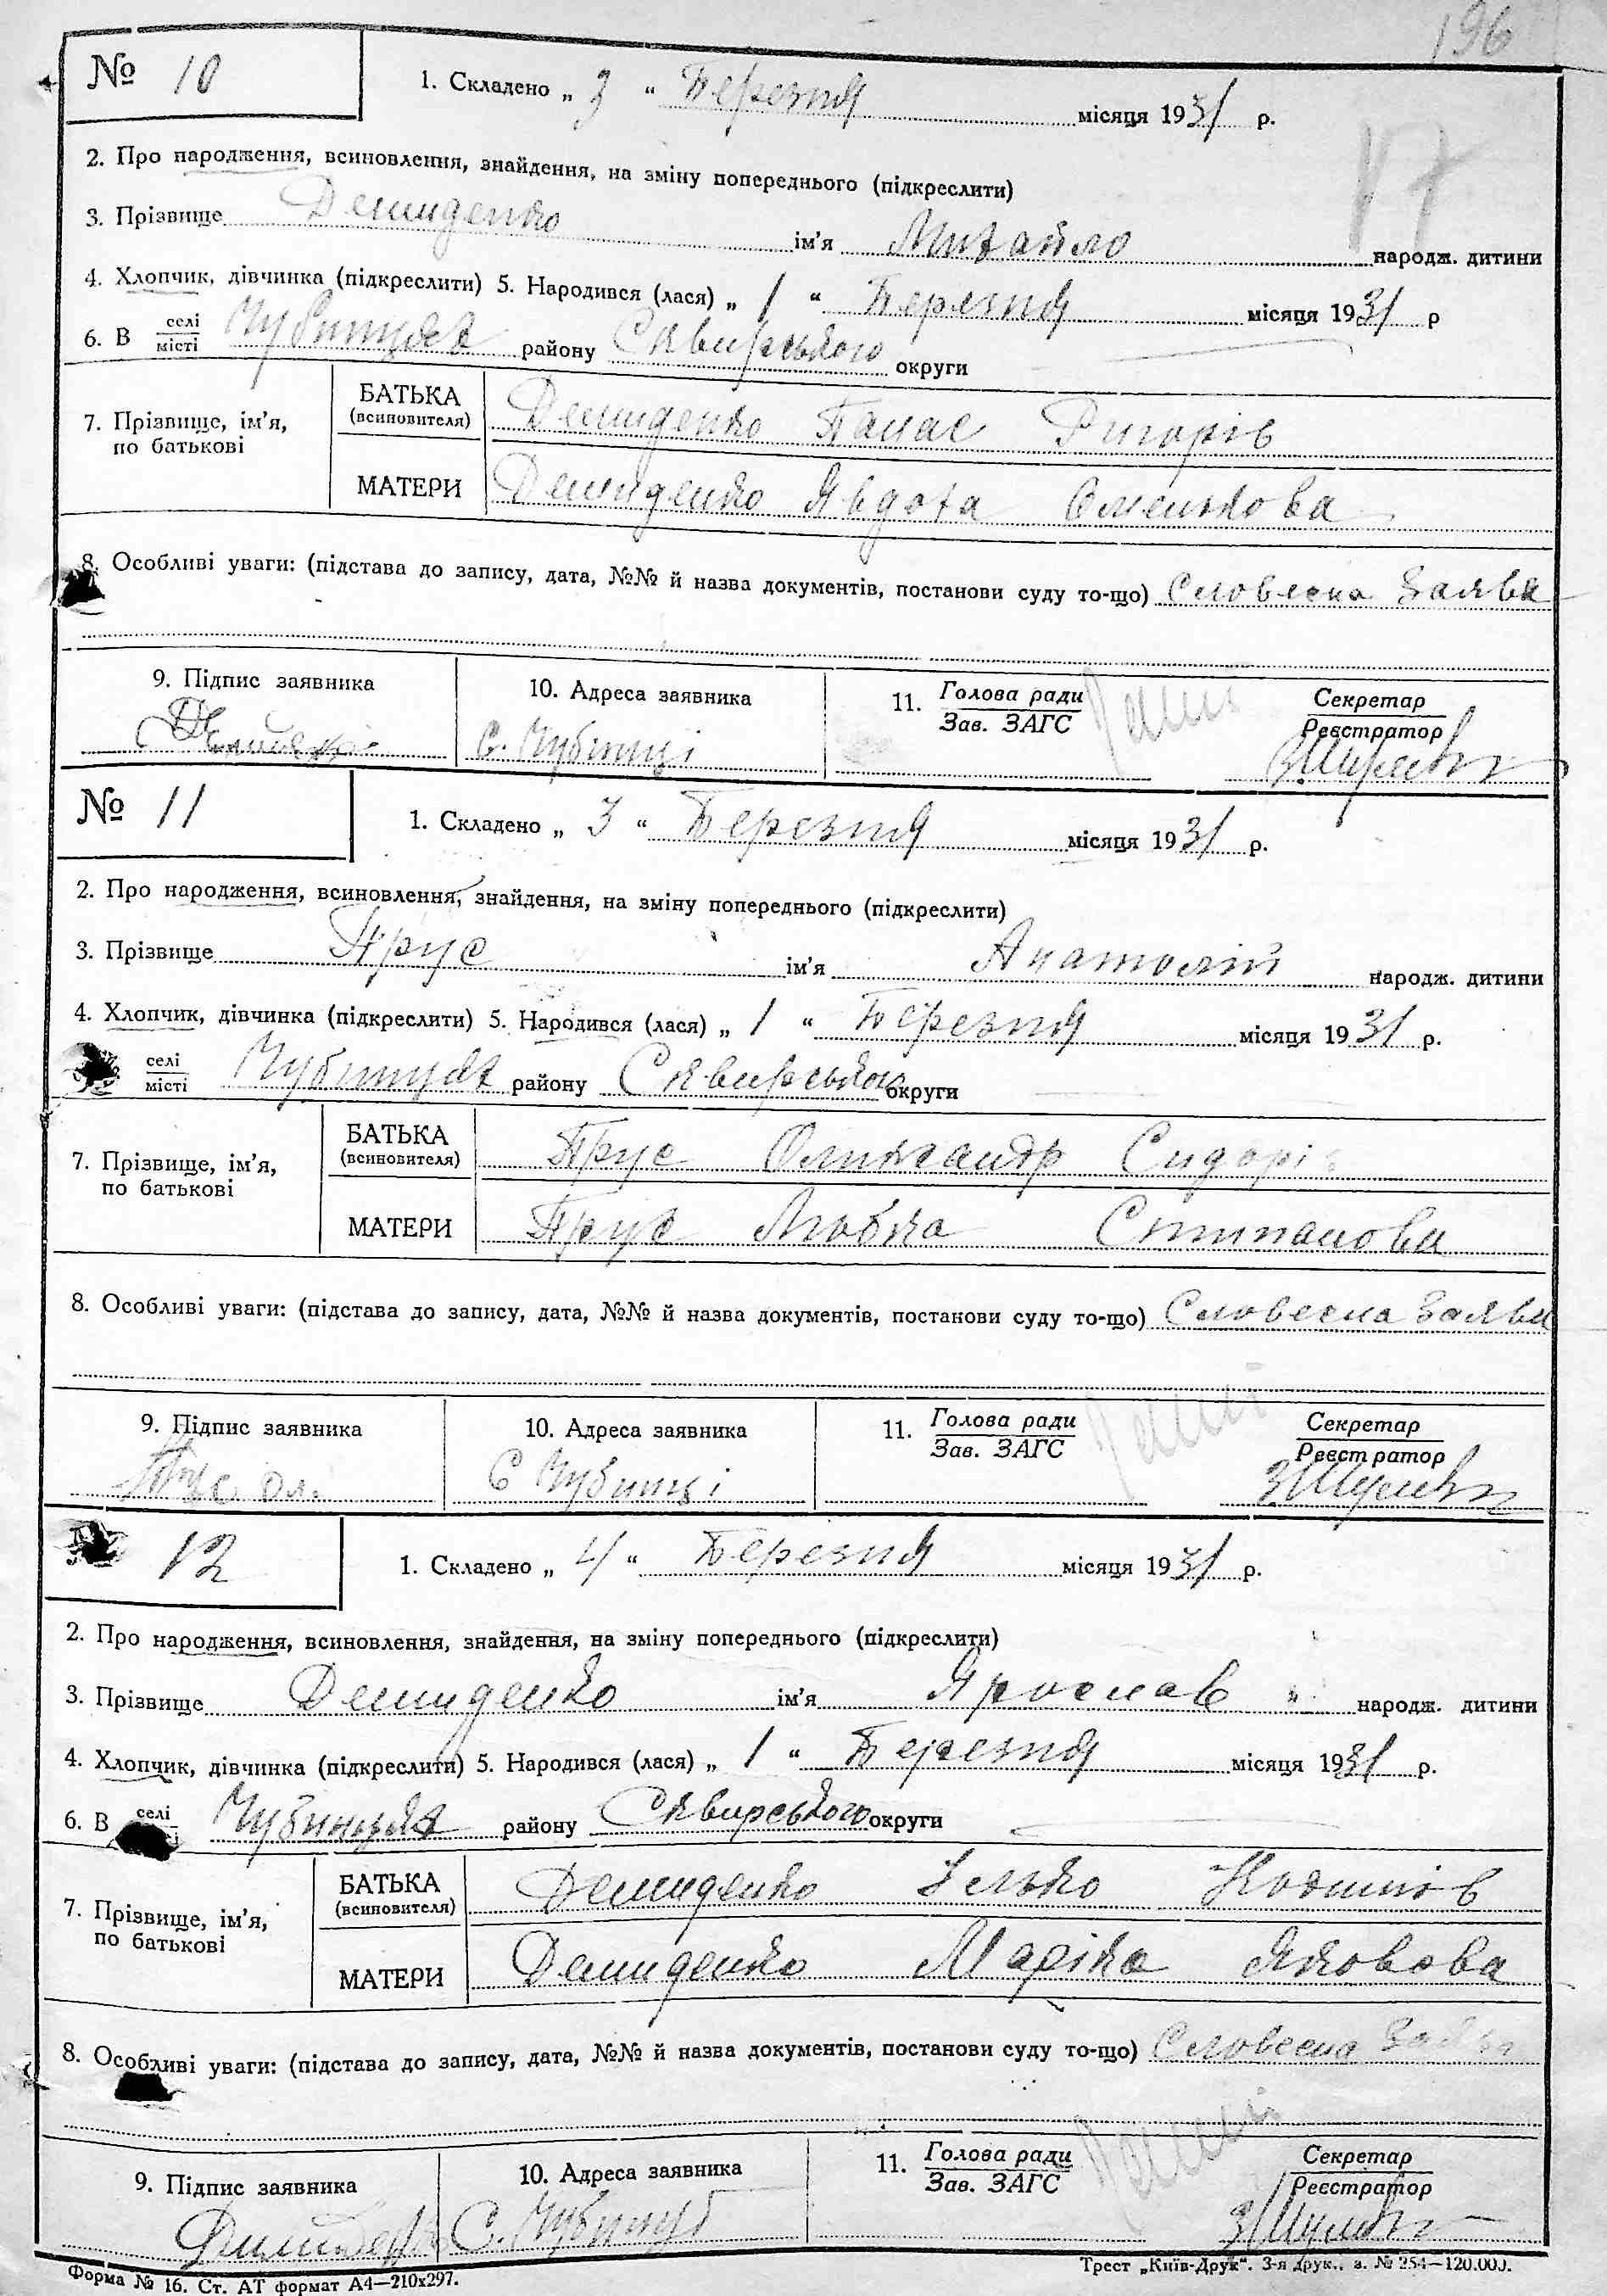 196
№ 10
1. Складено „ 3 “ Березня місяця 1931 р.
17
2. Про народження, всиновлення, знайдення, на зміну попереднього (підкреслити)
3. Прізвище Демиденко ім'я Михайло народж. дитини
4. Хлопчик, дівчинка (підкреслити) 5. Народився (лася) „ 1 “ Березня місяця 1931 р
6. В селі місті Чубинцях району Сквирського округи
7. Прізвище, ім'я, по батькові
БАТЬКА (всиновителя) Демиденко Панас Григорів
МАТЕРИ Демиденко Явдоха Омелькова
8. Особливі уваги: (підстава до запису, дата, №№ й назва документів, постанови суду то-що) Словесна Заява
9. Підпис заявника
10. Адреса заявника
11. Голова ради Зав. ЗАГС
Секретар Реєстратор
с. Чубинці
№ 11
1. Складено „ 3 “ Березня місяця 1931 р.
2. Про народження, всиновлення, знайдення, на зміну попереднього (підкреслити)
3. Прізвище Прус ім'я Анатолій народж. дитини
4. Хлопчик, дівчинка (підкреслити) 5. Народився (лася) „ 1 “ Березня місяця 1931 р.
селі місті Чубинцях району Сквирського округи
7. Прізвище, ім'я, по батькові
БАТЬКА (всиновителя) Прус Олександр Сидорів
МАТЕРИ Прус Любка Степанова
8. Особливі уваги: (підстава до запису, дата, №№ й назва документів, постанови суду то-що) Словесна Заява
9. Підпис заявника
10. Адреса заявника
11. Голова ради Зав. ЗАГС
Секретар Реєстратор
Прус Ол.
С Чубинці
12
1. Складено „ 4 “ Березня місяця 1931 р.
2. Про народження, всиновлення, знайдення, на зміну попереднього (підкреслити)
3. Прізвище Демиденко ім'я Ярослав народж. дитини
4. Хлопчик, дівчинка (підкреслити) 5. Народився (лася) „ 1 “ Березня місяця 1931 р.
6. В селі Чубинцях району Сквирського округи
7. Прізвище, ім'я, по батькові
БАТЬКА (всиновителя) Демиденко Ілько
МАТЕРИ Демиденко Марійка Яковова
8. Особливі уваги: (підстава до запису, дата, №№ й назва документів, постанови суду то-що) Словесна Заява
9. Підпис заявника
10. Адреса заявника
11. Голова ради Зав. ЗАГС
Секретар Реєстратор
С. Чубинці
Форма № 16. Ст. АТ формат А4—210х297.
Трест „Київ-Друк“. 3-я друк., з. № 254—120.000.